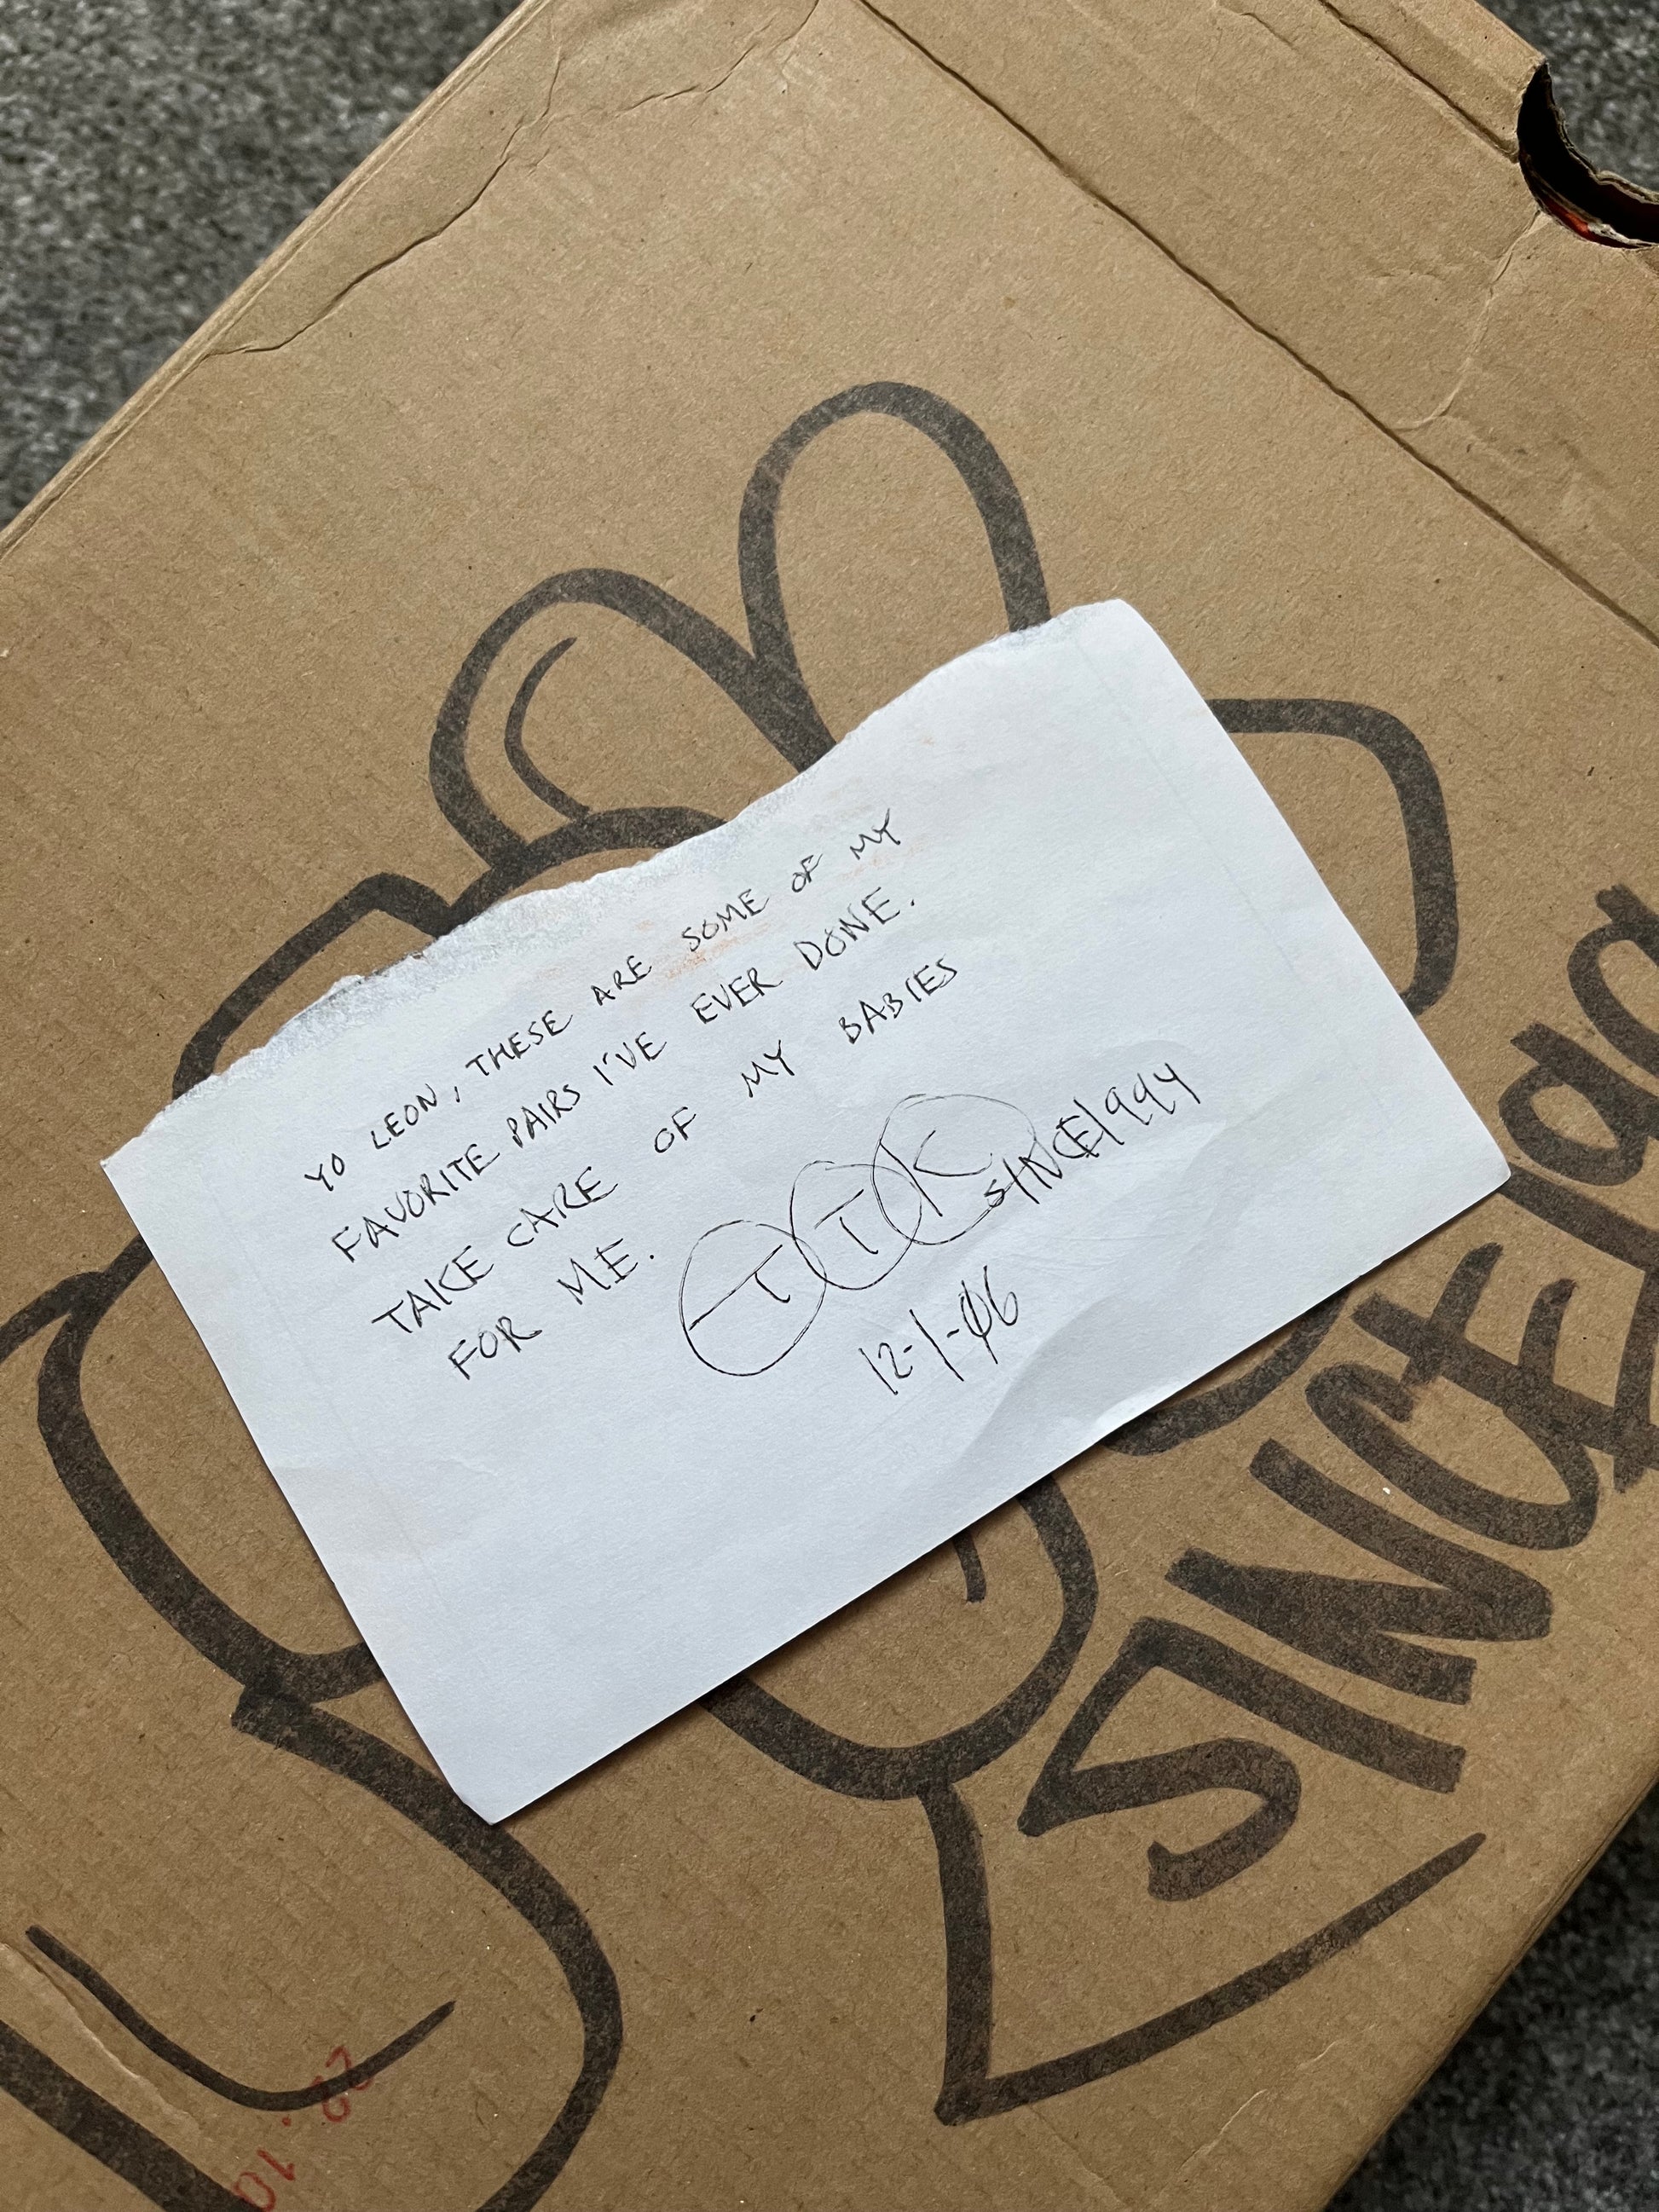 YO LEON, THESE ARE SOME OF MY
FAVORITE PAIRS I'VE EVER DONE.
TAKE CARE OF MY BABIES
FOR ME.
TTK SINCE1994
12-1-06
SINCE